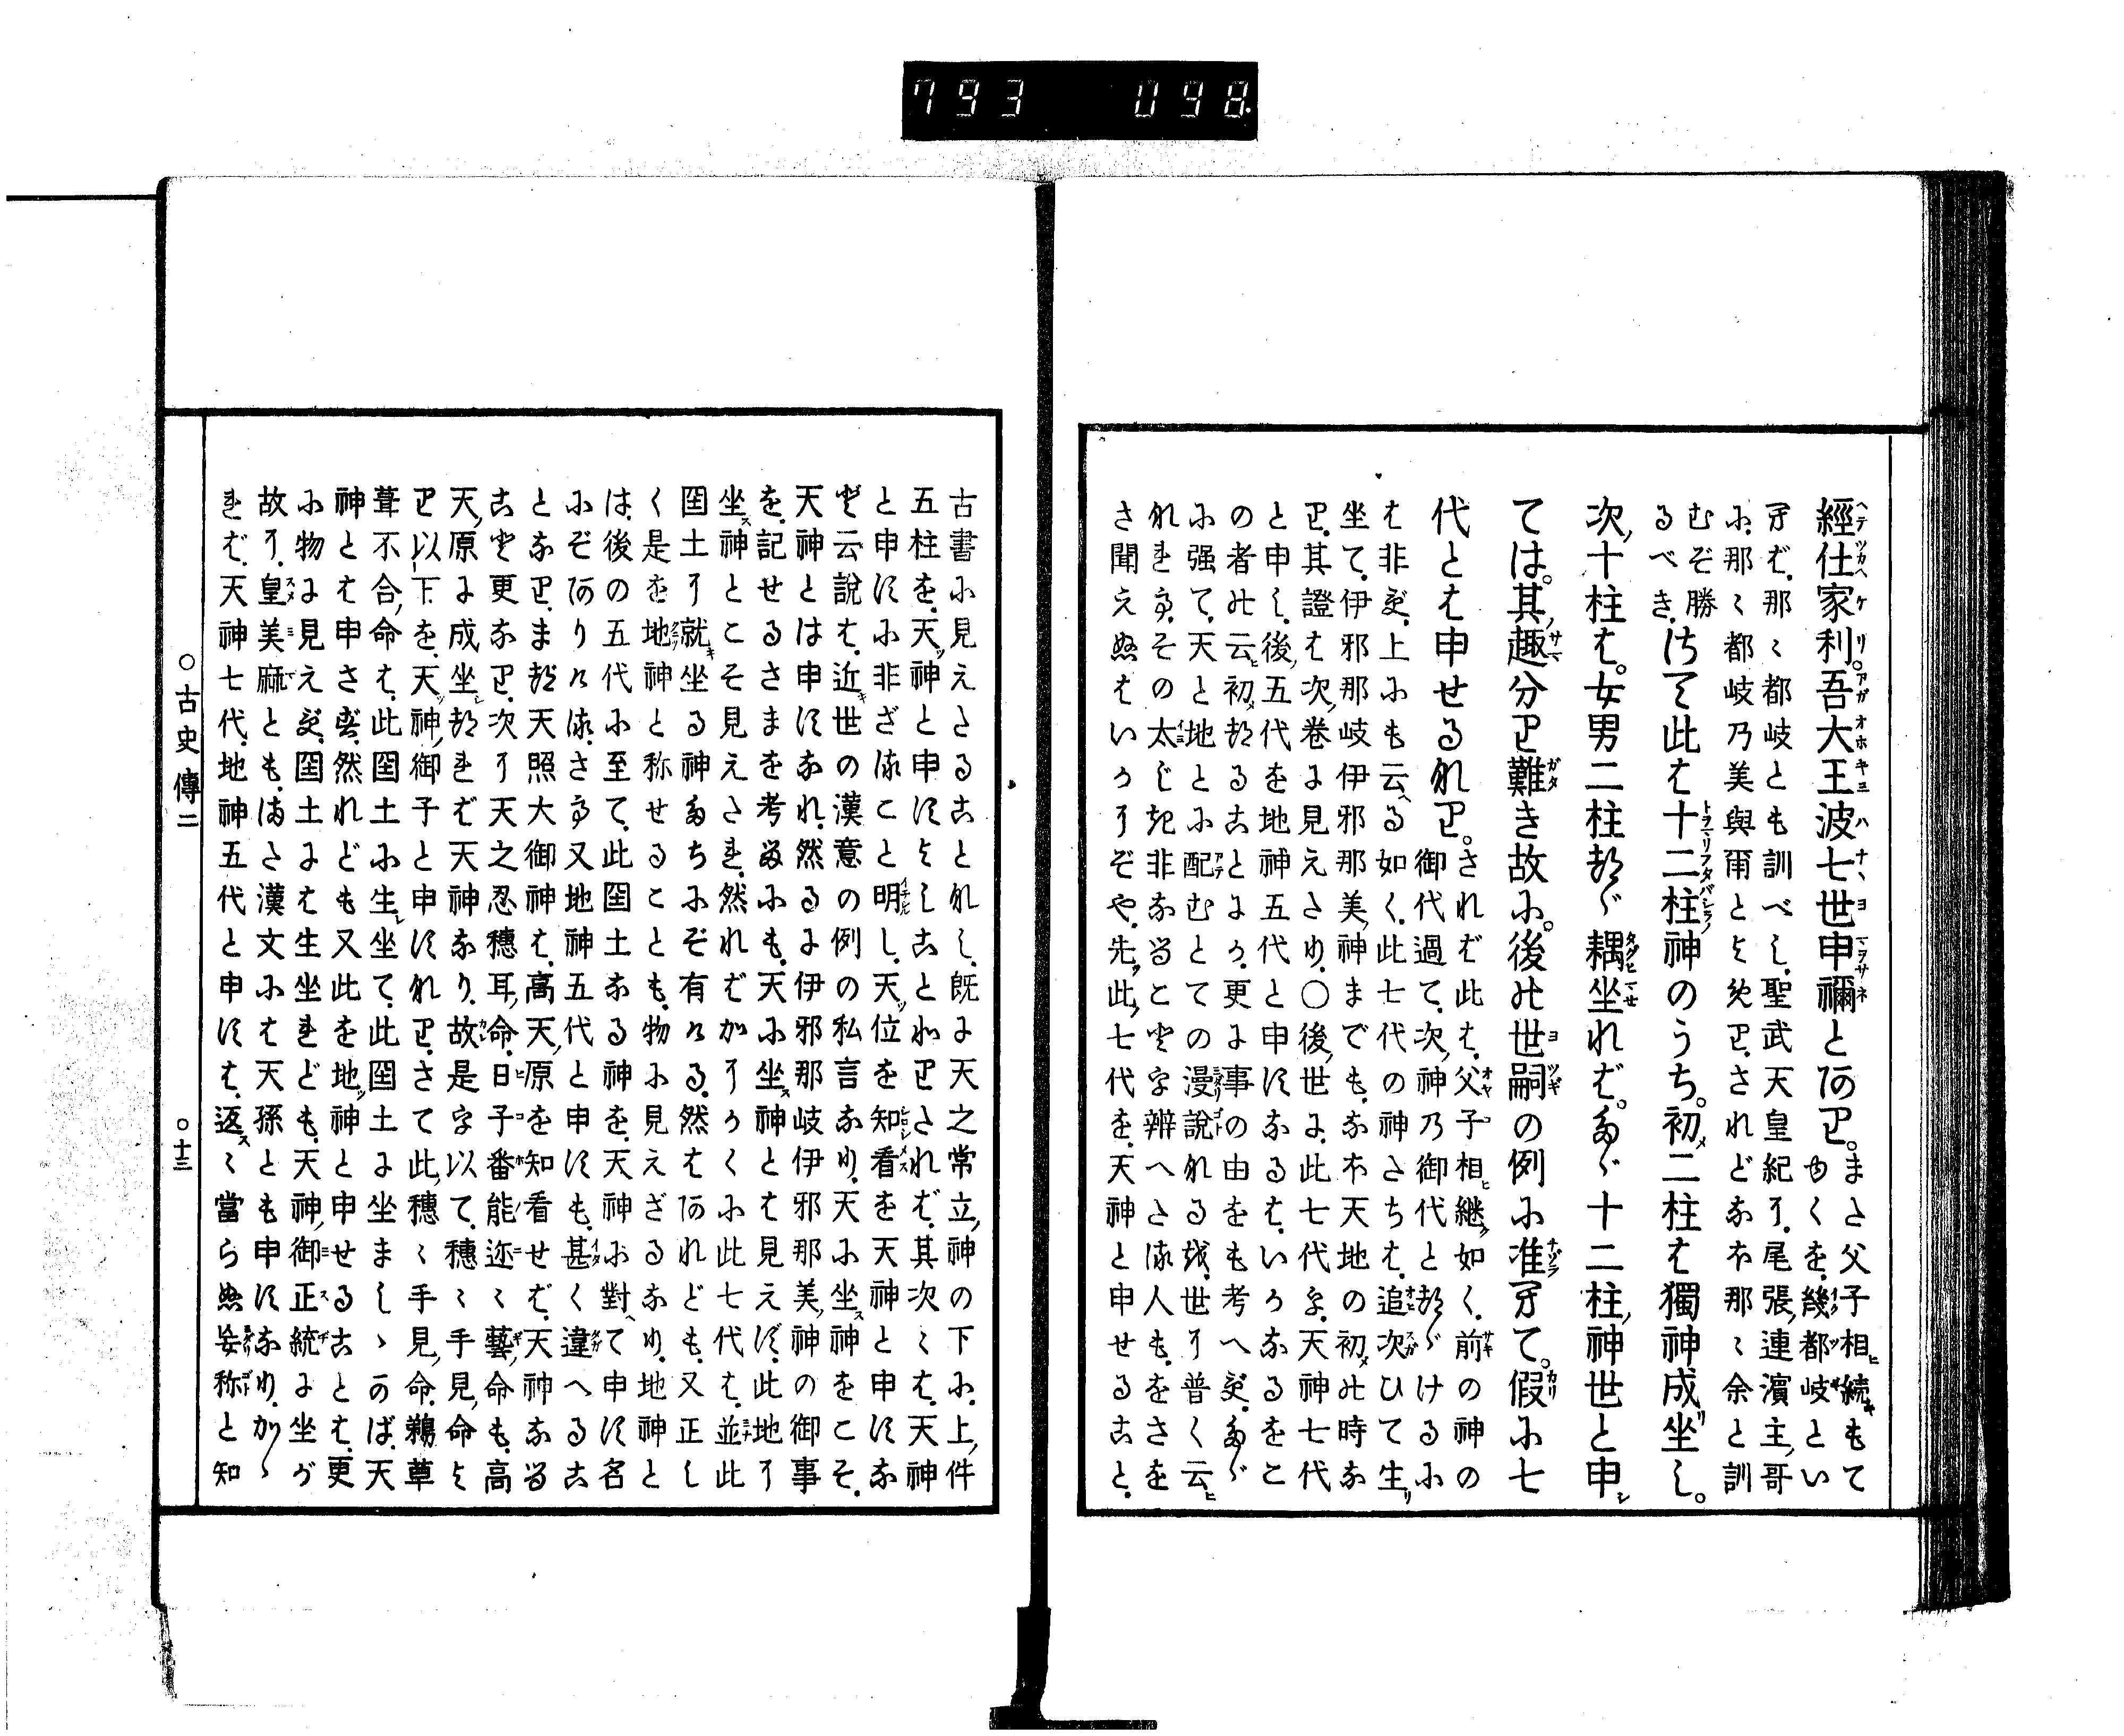 793 098
經仕家利。吾大王波七世申禰とあり。まさ父子相続もて
ゆくを、幾都岐とい
まで、那々都岐とも訓べし、聖武天皇紀に、尾張連濱主哥
に、那々都岐乃美與爾とよめり、されどなほ那々余と訓
むぞ勝
るべき、さて此は十二柱神のうち。初二柱は獨神成坐し。
次十柱は。女男二柱づゝ耦坐れば。すべて十二柱神世と申
ては。其趣分り難き故に。後の世嗣の例に准へて。假に七
代とは申せるなり。されば此は、父子相継如く、前の神の
御代過て、次神乃御代となりけるに
は非ず、上にも云る如く、此七代の神たちは、追次ひて生
坐て、伊邪那岐伊邪那美神までも、なほ天地の初の時な
り、其證は次巻に見えたり、〇後世に、此七代を、天神七代
と申し、後五代を地神五代と申すなるは、いかなるをこ
の者の云初たることにか、更に事の由をも考へず、たゞ
に强て、天と地とに配むとての漫說なるを、世に普く云
なれて、その太じき非なることを辨へたる人も、をさを
さ聞えぬはいかにぞや、先此七代を、天神と申せること、
古書に見えたることなし、既に天之常立神の下に、上件
五柱を、天神と申すよしことわりたれば、其次々は、天神
と申すに非ざること明し、天位を知看を天神と申すな
ど云說は、近世の漢意の例の私言なり、天に坐神をこそ、
天神とは申すなれ、然るに伊邪那岐伊邪那美神の御事
を、記せるさまを考るにも、天に坐神とは見えず、此地に
坐神とこそ見えたれ、然ればかにかくに此七代は、並此
国土に就坐る神たちにぞ有ける、然はあれども、又正し
く是を地神と称せることも、物に見えざるなり、地神と
は、後の五代に至て、此国土なる神を、天神に對て申す名
にぞありける、さて又地神五代と申すも、甚く違へるこ
となり、まづ天照大御神は、高天原を知看せば、天神なる
こと更なり、次に天之忍穗耳命、日子番能迩々藝命も、高
天原に成坐たれば天神なり、故是を以て、穗々手見命よ
り以下を、天神御子と申すなり、さて此穗々手見命、鵜草
葺不合命は、此国土に生坐て、此国土に坐ましゝのば、天
神とは申さず、然れども又此を地神と申せることは、更
に物に見えず、国土には生坐れども、天神御正統に坐が
故に、皇美麻とも、また漢文には天孫とも申すなり、かゝ
れば、天神七代、地神五代と申すは、返々當らぬ妄称と知
〇古史傳二
〇十三